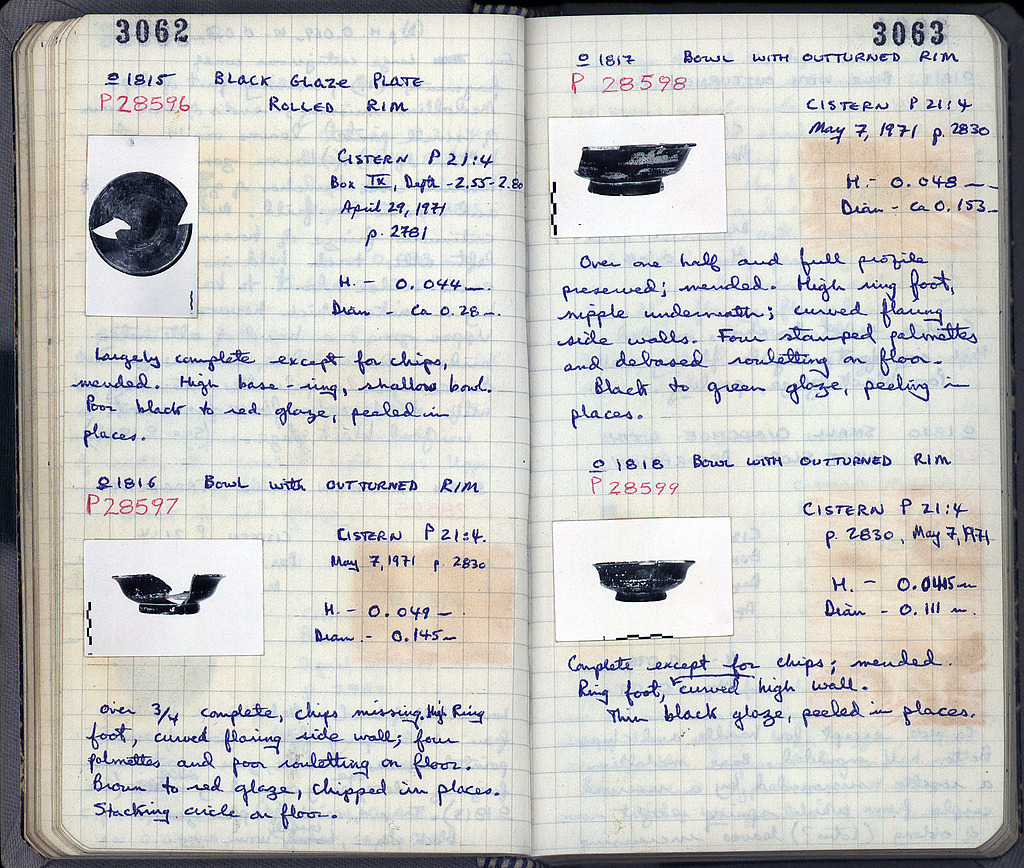 3062
o 1815 BLACK GLAZE PLATE
P 28596 ROLLED RIM
CISTERN P 21:4
Box IX, Depth -2.55-2.80
April 29, 1971
p. 2781
H. - 0.044 m.
Diam - ca 0.28 -.
Largely complete except for chips,
mended. High base-ring, shallow bowl.
Poor black to red glaze, peeled in
places.
o 1816 BOWL WITH OUTTURNED RIM
P 28597
CISTERN P 21:4.
May 7, 1971 p. 2830
H. - 0.049 -.
Diam. - 0.145 m
Over 3/4 complete, chips missing. High Ring
foot, curved flaring side wall; four
palmettes and poor rouletting on floor.
Brown to red glaze, chipped in places.
Stacking circle on floor.
3063
o 1817 BOWL WITH OUTTURNED RIM
P 28598
CISTERN P 21:4
May 7, 1971 p. 2830
H. - 0.048 m
Diam - ca 0.153 -
Over one half and full profile
preserved; mended. High ring foot,
nipple underneath; curved flaring
side walls. Four stamped palmettes
and debased rouletting on floor.
Black to green glaze, peeling in
places.
o 1818 BOWL WITH OUTTURNED RIM
P 28599
CISTERN P 21:4
p. 2830, May 7, 1971
H. - 0.0445 m
Diam - 0.111 m.
Complete except for chips; mended.
Ring foot, curved high wall.
Thin black glaze, peeled in places.